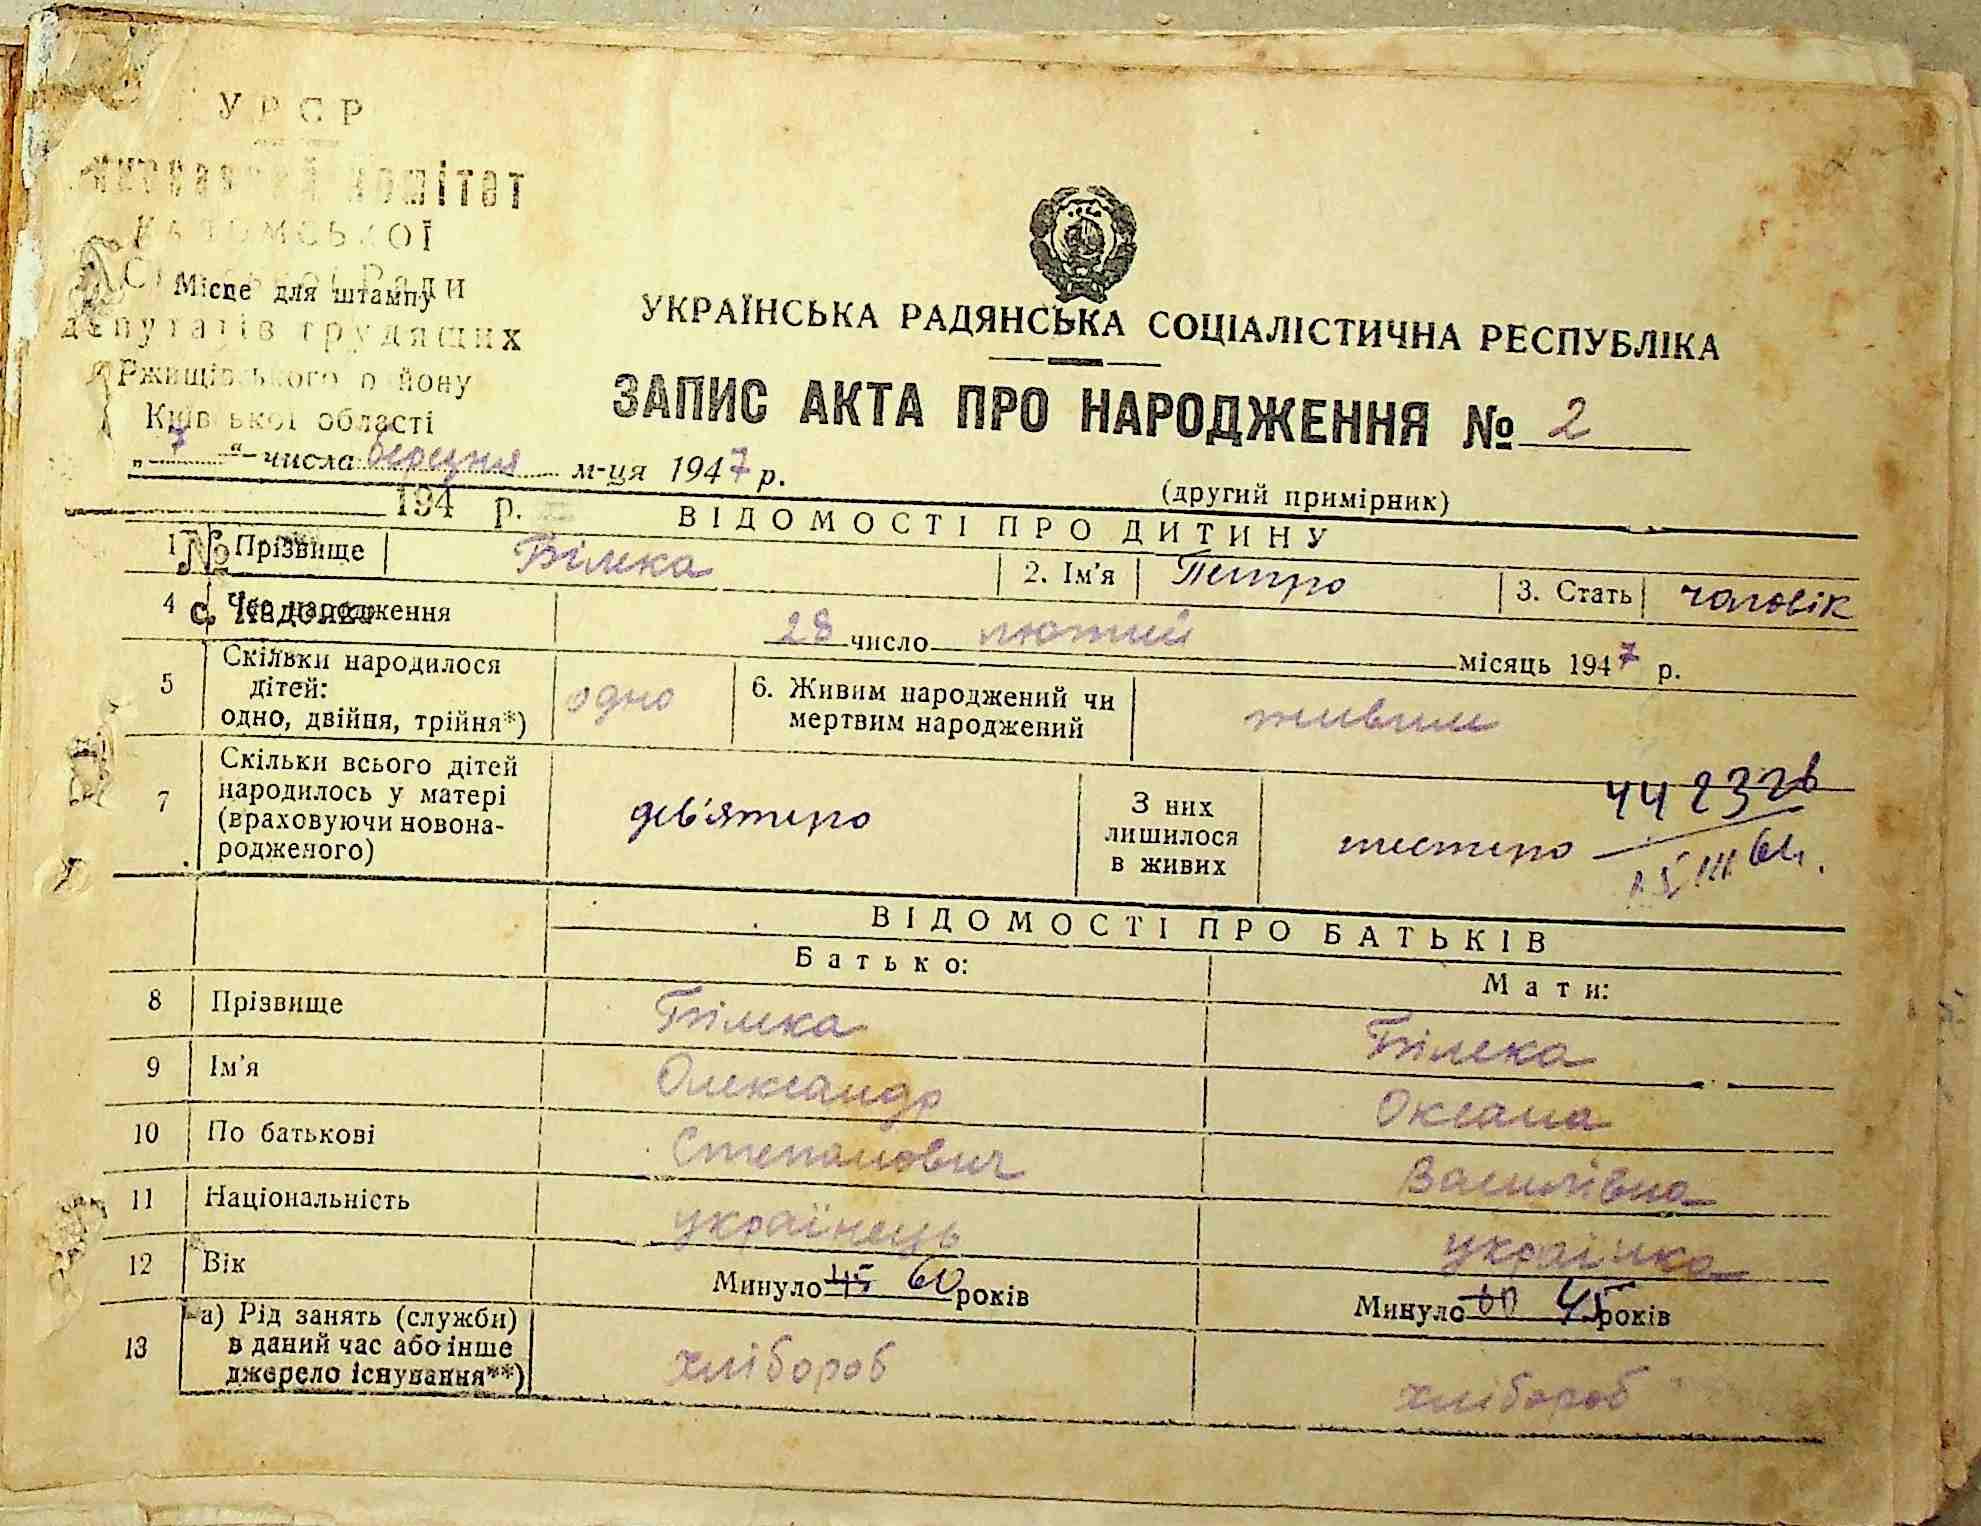 УРСР
комітет
Сільської Ради
Місце для штампу
депутатів трудящих
Ржищівського району
Київської області
УКРАЇНСЬКА РАДЯНСЬКА СОЦІАЛІСТИЧНА РЕСПУБЛІКА
ЗАПИС АКТА ПРО НАРОДЖЕННЯ № 2
„ 7 “ числа березня м-ця 1947 р.
(другий примірник)
194 р.
ВІДОМОСТІ ПРО ДИТИНУ
№
1 Прізвище Білека 2. Ім'я Петро 3. Стать чоловік
4 Час народження 28 число лютий місяць 1947 р.
с.
5 Скільки народилося дітей: одно, двійня, трійня*) одно 6. Живим народжений чи мертвим народжений живим
7 Скільки всього дітей народилось у матері (враховуючи новонародженого) дев'ятеро З них лишилося в живих шестеро
ВІДОМОСТІ ПРО БАТЬКІВ
Батько: Мати:
8 Прізвище Білека Білека
9 Ім'я Олександр Оксана
10 По батькові Степанович Василівна
11 Національність українець українка
12 Вік Минуло 45 60 років Минуло 60 45 років
13 а) Рід занять (служби) в даний час або інше джерело існування**) хлібороб хлібороб